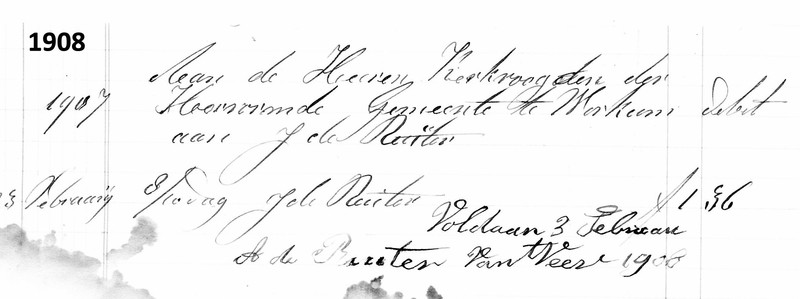 1908
Aan de Heeren Kerkvoogden der
1907 Hoervormde Gemeente te Workum debet
aan J de Ruiter
23 Februarij 8/10 dag J de Ruiter f 1 36
Voldaan 3 Februari
de Ruiter Van Veer 1908